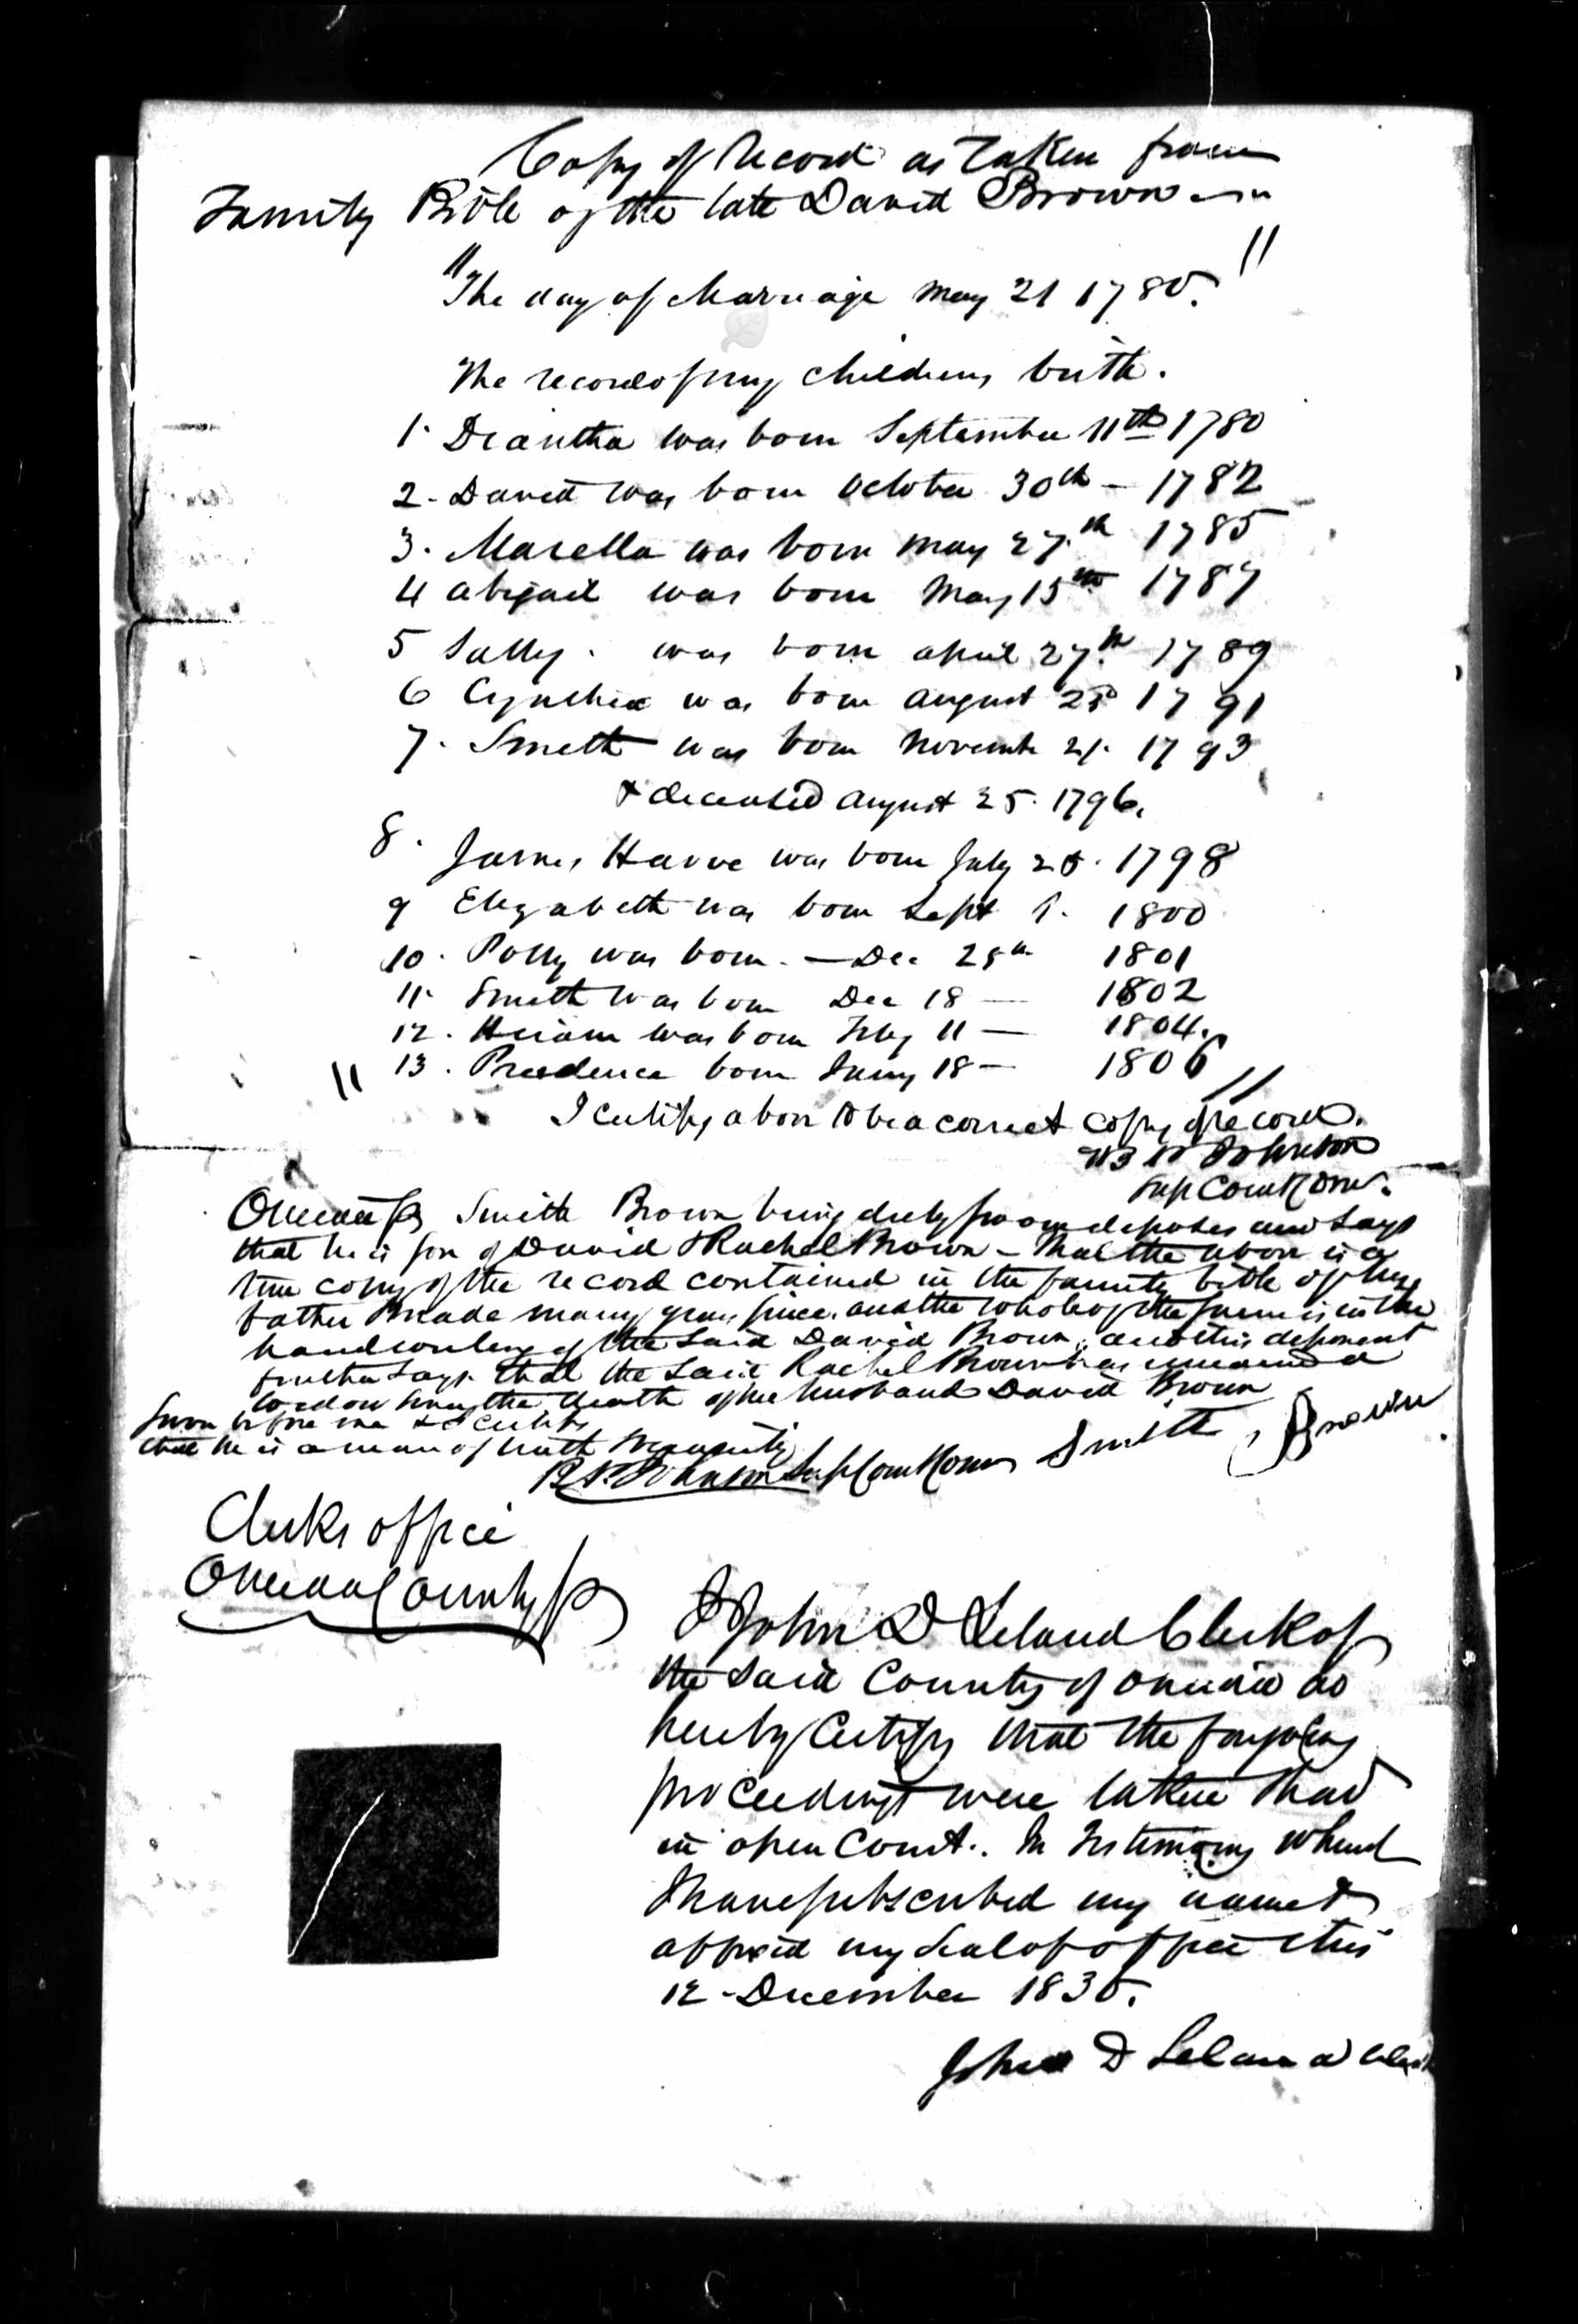 Copy of Record as taken from
Family Bible of the late David Brown
"The day of Marriage May 21 1780."
The record of my childrens birth.
1. Diantha was born September 11th 1780
2 - David was born October 30th - 1782
3. Marella was born May 27.th 1785
4 Abigail was born May 15th 1787
5 Sally. was born April 27.th 1789
6 Cynthia was born August 25 1791
7. Smith was born November 21. 1793
& deceased August 25. 1796.
8. James Harve was born July 28. 1798
9 Elizabeth was born Sept 1. 1800
10. Polly was born - Dec 25th 1801
11. Smith was born Dec 18 — 1802
12. Hiram was born Feby 11 — 1804.
" 13. Preedence born Jany 18 — 1806 "
I certify above to be a correct copy of record.
B P Johnson
Sup Court Comr.
Oneida ss Smith Brown being duly sworn deposes and says
that he is son of David & Rachel Brown - That the above is a
true copy of the record contained in the family bible of his
father made many years since. and the whole of the same is in the
handwriting of the said David Brown, and this deponent
further says that the said Rachel Brown has remained a
widow since the death of her husband David Brown
Sworn before me & I certify
that he is a man of truth & veracity
B P Johnson Sup Court Comr Smith Brown
Clerks office
Oneida County ss
I John D Leland Clerk of
the said County of Oneida do
hereby Certify that the foregoing
proceedings were taken & had
in open Court. In testimony whereof
I have subscribed my name &
affixed my seal of office this
12 - December 1836.
John D Leland Clerk